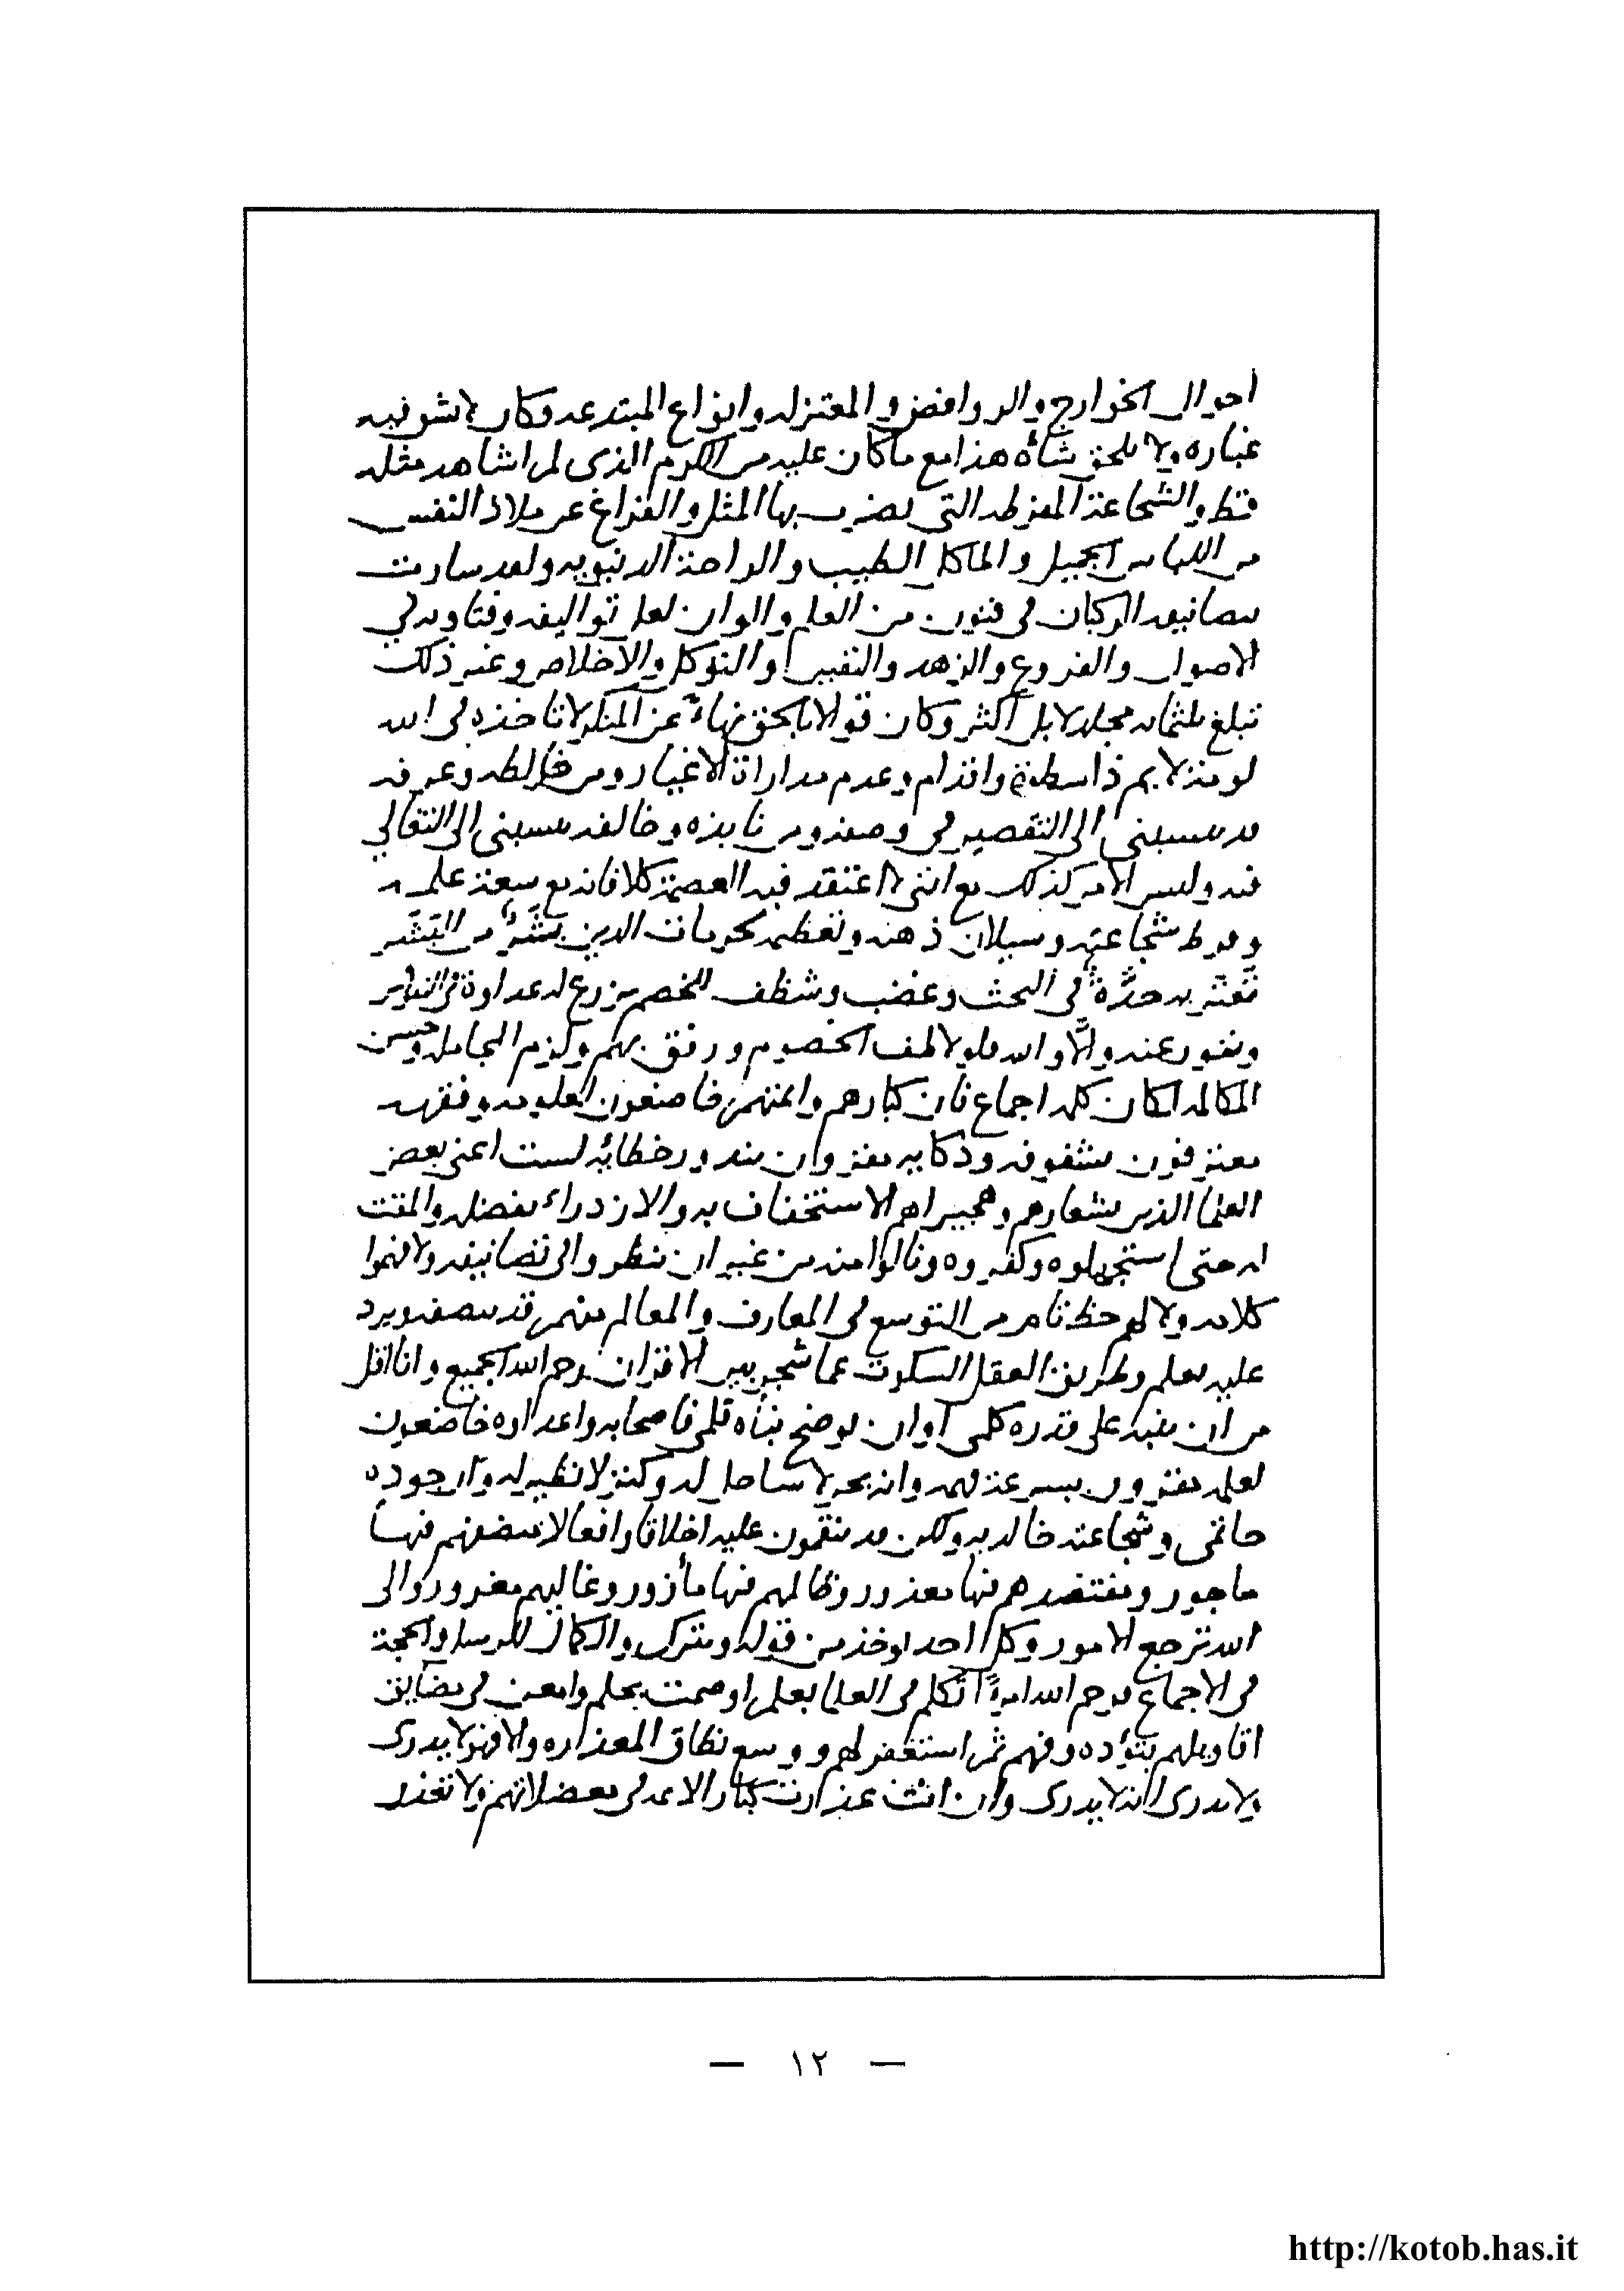 احوال الخوارج والروافض والمعتزله وانواع المبتدعه وكان لا يشق فيه
غباره ولا يلحق شأه هذا مع ما كان عليه من الكرم الذى لم اشاهد مثله
قط والشجاعة المفرطه التي يضرب بها المثل والفراغ عن ملاذ النفس
من اللباس الجميل والماكل الطيب والراحة الدنيويه ولقد سارت
بتصانيفه الركبان في فنون من العلم والوان لعل تواليفه وفتاويه في
الاصول والفروع والزهد والتفسير والتوكل والاخلاص وغير ذلك
تبلغ ثلثمايه مجلد لا بل أكثر وكان قوالا بالحق نهاءً عن المنكر لا تاخذه في الله
لومة لايم ذا سطوة واقدام وعدم مداراة الاغيار ومن خالطه وعرفه
قد ينسبني الى التقصير في وصفه ومن نابذه وخالفه ينسبني الى التغالي
فيه وليس الامر كذلك مع انني لا اعتقد فيه العصمة كلا فانه مع سعة علمه
وفرط شجاعته وسيلان ذهنه وتعظيمه لحرمات الدين بَشَرٌ من البَشَر
تعتريه حدَّةٌ في البحث وغضب وشظف للخصم يزرع له عداوة في النفوس
ونفور عنه والَّا والله فلو لاطف الخصوم ورفق بهم ولزم المجاملة وحسن
المكالمه لكان كلمه اجماع فان كبارهم وائمتهم خاضعون لعلومه وفقهه
معترفون بشفوفه وذكايه مقرون بندور خطائِه لست اعني بعض
العلما الذين شعارهم وهجيراهم الاستخفاف به والازدراء بفضله والمقت
له حتى استجهلوه وكفروه ونالوا منه من غير ان ينظروا في تصانيفه ولا فهموا
كلامه ولا لهم حظ تام من التوسع في المعارف والعالم منهم قد ينصفه ويرد
عليه بعلم وطريق العقل السكوت عما شجر بين الاقران رحم الله الجميع وانا اقل
من ان ينبه على قدره كلمى او ان يوضح نبأه قلمى فاصحابه واعداوه خاضعون
لعلمه مقرون بسرعة فهمه وانه بحر لا ساحل له وكنز لا نظير له وان جوده
حاتمى وشجاعته خالديه ولكن قد ينقمون عليه اخلاقا وافعالا منصفهم فيها
ماجور ومقتصدهم فيها معذور وظالمهم فيها مأزور وغاليهم مغرور والى
الله ترجع الامور وكل احد يوخذ من قوله ويترك والكمال للرسل والحجة
في الاجماع فرحم الله امرءًا تكلم في العلما بعلم او صمت بحلم وامعن في مضايق
اقاويلهم بتؤده وفهم ثم استغفر لهم ووسع نطاق المعذره والا فهو لا يدرى
ولا يدرى انه لا يدرى وان انت عذرت كبار الائمه في معضلاتهم ولا تعذر
— ١٢ —
http://kotob.has.it